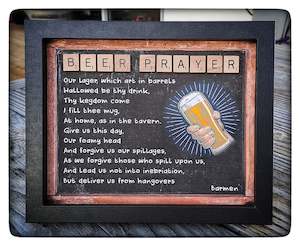 BEER PRAYER
Our lager, which art in barrels
Hallowed be thy drink,
Thy kegdom come
I fill thee mug,
At home, as in the tavern.
Give us this day,
Our foamy head
And forgive us our spillages,
As we forgive those who spill upon us,
And lead us not into inebriation,
But deliver us from hangovers
Barmen